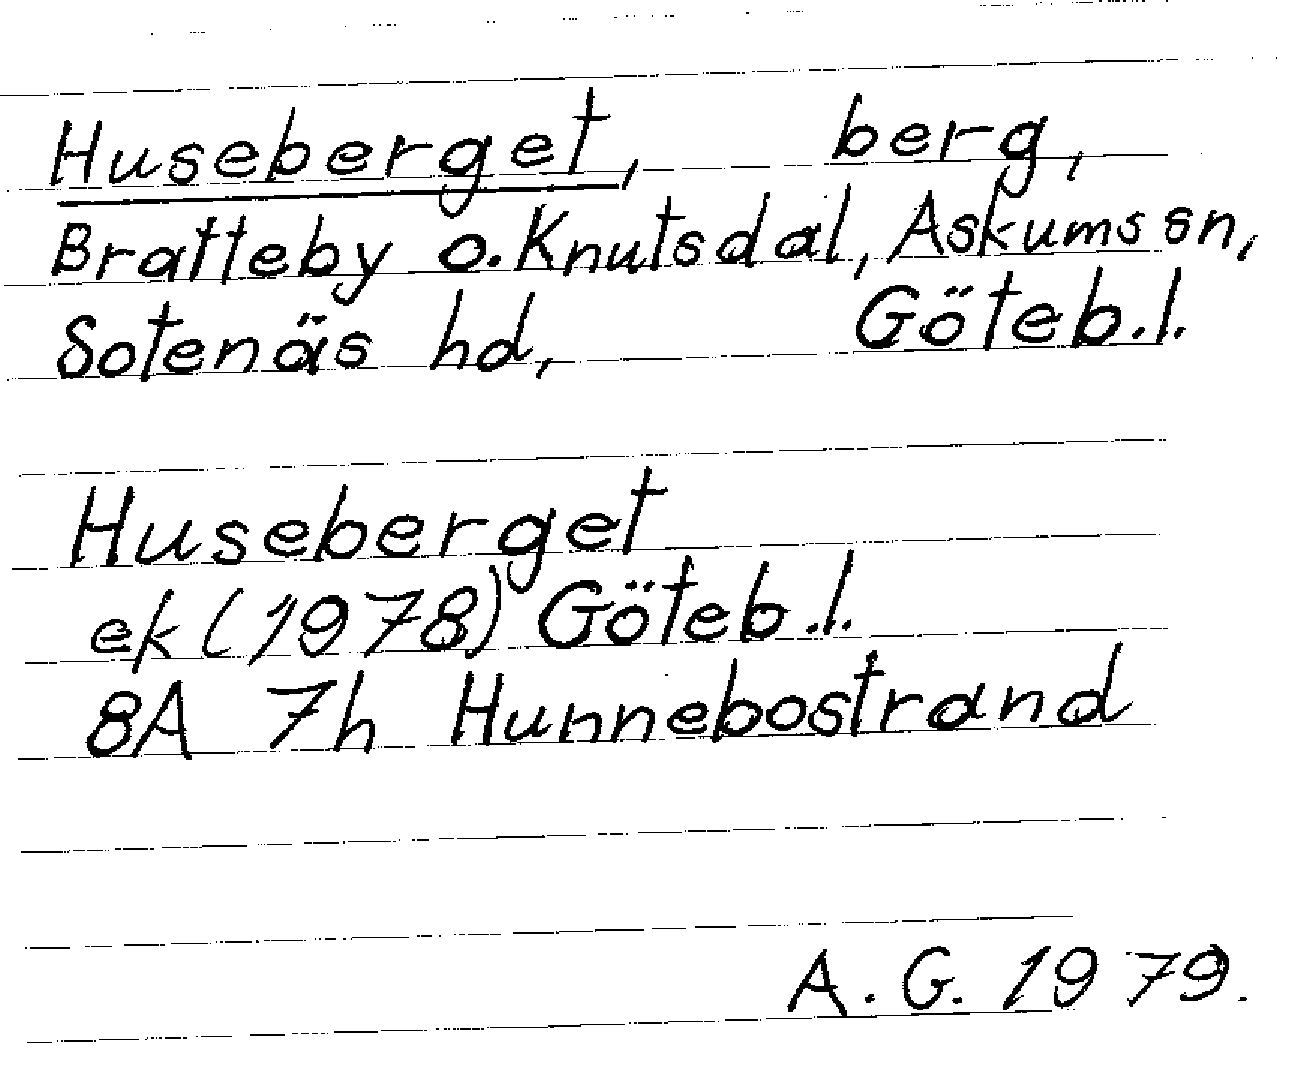 Huseberget, berg,
Bratteby o. Knutsdal, Askums sn,
Sotenäs hd, Göteb. l.
Huseberget
ek (1978) Göteb. l.
8A 7h Hunnebostrand
A. G. 1979.